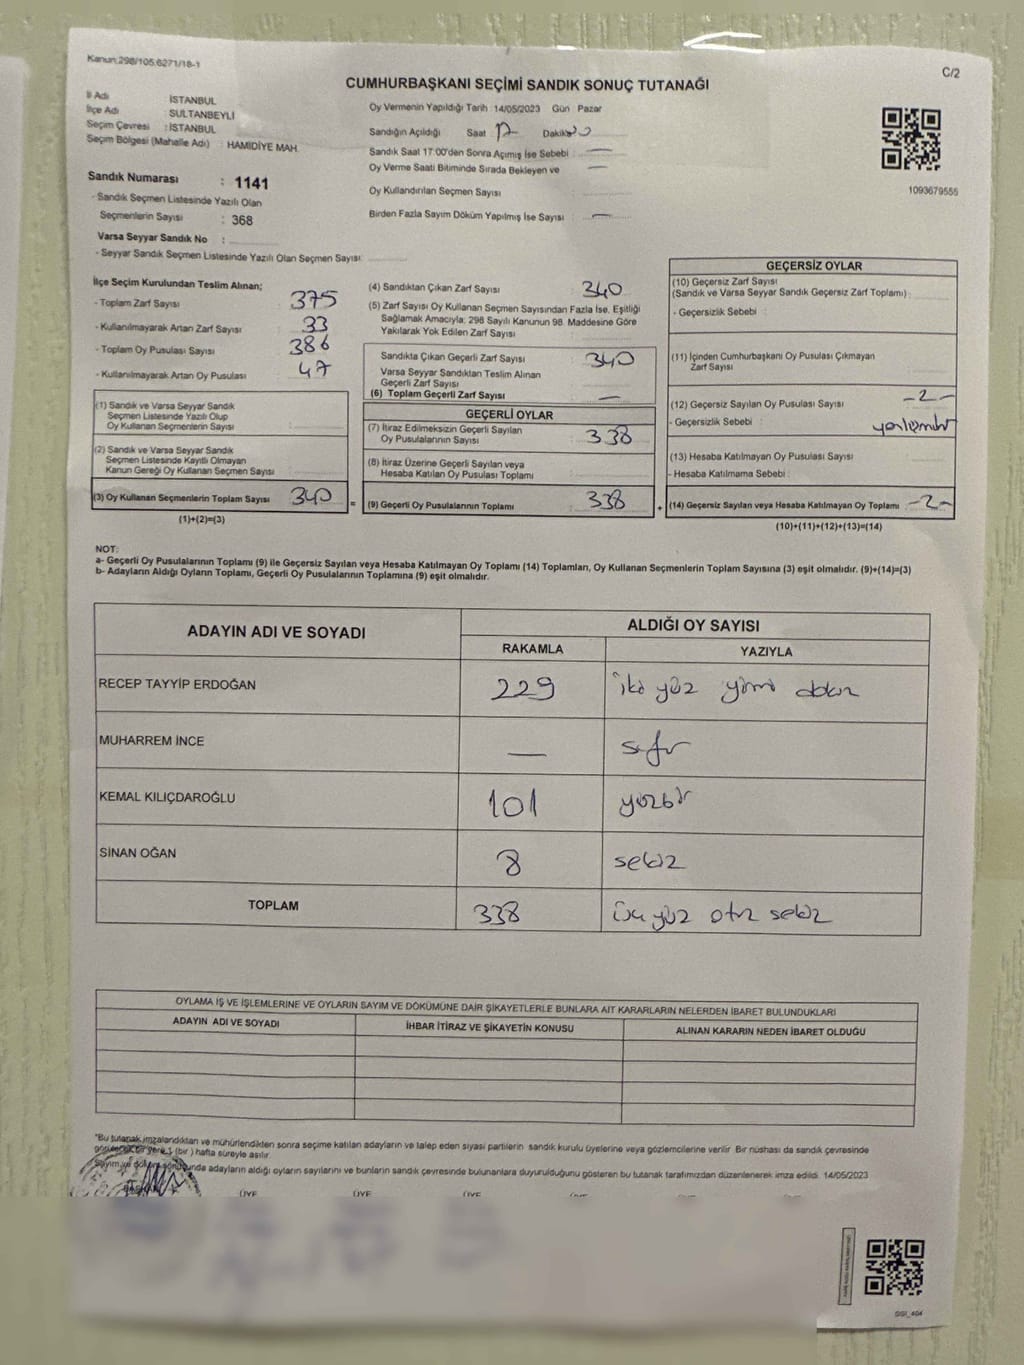 Kanun:298/105;6271/18-1
C/2
CUMHURBAŞKANI SEÇİMİ SANDIK SONUÇ TUTANAĞI
İl Adı İSTANBUL
İlçe Adı SULTANBEYLİ
Seçim Çevresi : İSTANBUL
Seçim Bölgesi (Mahalle Adı) HAMIDİYE MAH.
Sandık Numarası : 1141
- Sandık Seçmen Listesinde Yazılı Olan
Seçmenlerin Sayısı : 368
Varsa Seyyar Sandık No :
- Seyyar Sandık Seçmen Listesinde Yazılı Olan Seçmen Sayısı:
Oy Vermenin Yapıldığı Tarih :14/05/2023 Gün Pazar
Sandığın Açıldığı Saat 17 Dakika
Sandık Saat 17:00'den Sonra Açımış İse Sebebi : —
Oy Verme Saati Bitiminde Sırada Bekleyen ve —
Oy Kullandırılan Seçmen Sayısı
Birden Fazla Sayım Döküm Yapılmış İse Sayısı : —
1093679555
İlçe Seçim Kurulundan Teslim Alınan;
- Toplam Zarf Sayısı : 375
- Kullanılmayarak Artan Zarf Sayısı : 33
- Toplam Oy Pusulası Sayısı : 386
- Kullanılmayarak Artan Oy Pusulası : 47
(1) Sandık ve Varsa Seyyar Sandık
Seçmen Listesinde Yazılı Olup
Oy Kullanan Seçmenlerin Sayısı :
(2) Sandık ve Varsa Seyyar Sandık
Seçmen Listesinde Kayıtlı Olmayan
Kanun Gereği Oy Kullanan Seçmen Sayısı :
(3) Oy Kullanan Seçmenlerin Toplam Sayısı : 340
(1)+(2)=(3)
(4) Sandıktan Çıkan Zarf Sayısı : 340
(5) Zarf Sayısı Oy Kullanan Seçmen Sayısından Fazla İse, Eşitliği
Sağlamak Amacıyla; 298 Sayılı Kanunun 98. Maddesine Göre
Yakılarak Yok Edilen Zarf Sayısı :
Sandıkta Çıkan Geçerli Zarf Sayısı : 340
Varsa Seyyar Sandıktan Teslim Alınan
Geçerli Zarf Sayısı :
(6) Toplam Geçerli Zarf Sayısı : —
GEÇERLİ OYLAR
(7) İtiraz Edilmeksizin Geçerli Sayılan
Oy Pusulalarının Sayısı : 338
(8) İtiraz Üzerine Geçerli Sayılan veya
Hesaba Katılan Oy Pusulası Toplamı :
= (9) Geçerli Oy Pusulalarının Toplamı : 338
GEÇERSİZ OYLAR
(10) Geçersiz Zarf Sayısı
(Sandık ve Varsa Seyyar Sandık Geçersiz Zarf Toplamı) :
- Geçersizlik Sebebi :
(11) İçinden Cumhurbaşkanı Oy Pusulası Çıkmayan
Zarf Sayısı :
(12) Geçersiz Sayılan Oy Pusulası Sayısı : -2-
- Geçersizlik Sebebi :
(13) Hesaba Katılmayan Oy Pusulası Sayısı :
- Hesaba Katılmama Sebebi :
+ (14) Geçersiz Sayılan veya Hesaba Katılmayan Oy Toplamı : -2-
(10)+(11)+(12)+(13)=(14)
NOT:
a- Geçerli Oy Pusulalarının Toplamı (9) ile Geçersiz Sayılan veya Hesaba Katılmayan Oy Toplamı (14) Toplamları, Oy Kullanan Seçmenlerin Toplam Sayısına (3) eşit olmalıdır. (9)+(14)=(3)
b- Adayların Aldığı Oyların Toplamı, Geçerli Oy Pusulalarının Toplamına (9) eşit olmalıdır.
ADAYIN ADI VE SOYADI
ALDIĞI OY SAYISI
RAKAMLA YAZIYLA
RECEP TAYYİP ERDOĞAN 229 iki yüz yirmi dokuz
MUHARREM İNCE — sıfır
KEMAL KILIÇDAROĞLU 101 yüzbir
SİNAN OĞAN 8 sekiz
TOPLAM 338 üç yüz otuz sekiz
OYLAMA İŞ VE İŞLEMLERİNE VE OYLARIN SAYIM VE DÖKÜMÜNE DAİR ŞİKAYETLERLE BUNLARA AİT KARARLARIN NELERDEN İBARET BULUNDUKLARI
ADAYIN ADI VE SOYADI İHBAR İTİRAZ VE ŞİKAYETİN KONUSU ALINAN KARARIN NEDEN İBARET OLDUĞU
"Bu tutanak imzalandıktan ve mühürlendikten sonra seçime katılan adayların ve talep eden siyasi partilerin sandık kurulu üyelerine veya gözlemcilerine verilir. Bir nüshası da sandık çevresinde
görülecek bir yere 1 (bir ) hafta süreyle asılır.
Sayım ve döküm sonucunda adayların aldığı oyların sayılarını ve bunların sandık çevresinde bulunanlara duyurulduğunu gösteren bu tutanak tarafımızdan düzenlenerek imza edildi. 14/05/2023
ÜYE ÜYE ÜYE